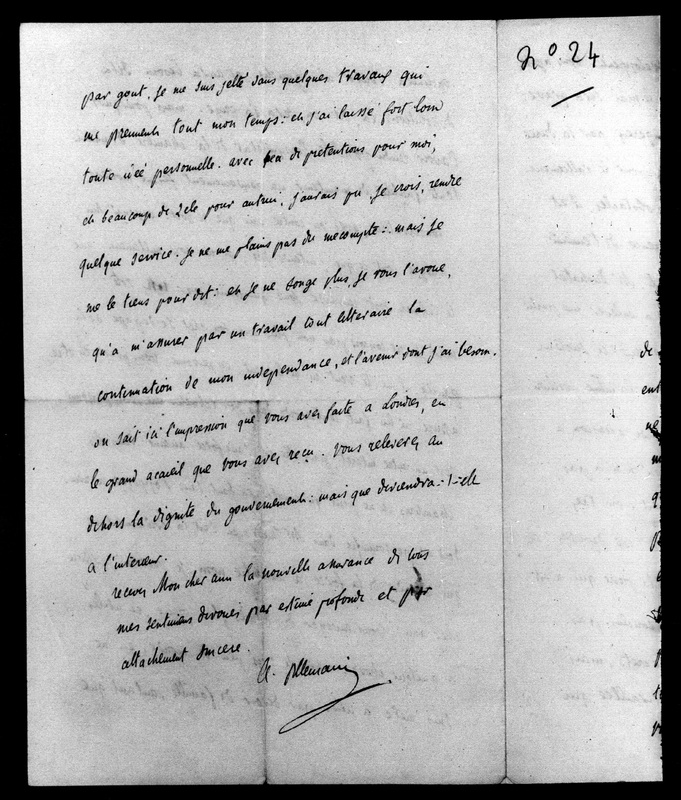 No 24
par gout, je me suis jetté dans quelques travaux qui
me prennent tout mon temps: et j'ai laissé fort loin
toute idée personnelle. avec peu de pretentions pour moi,
et beaucoup de zele pour autrui, j'aurais pu, je crois, rendre
quelque service. je ne me plains pas du mecompte: mais je
me le tiens pour dit: et je ne songe plus, je vous l'avoue,
qu'a m'assurer par un travail tout litteraire la
continuation de mon independance, et l'avenir dont j'ai besoin.
on sait ici l'impression que vous avez faite a Londres, en
le grand accueil que vous avez reçu. vous releverez au
dehors la dignité du gouvernement: mais que deviendra-t-elle
a l'interieur.
recevez Mon cher ami la nouvelle assurance de tous
mes sentimens devoués par estime profonde et par
attachement sincere.
de
ent
ne